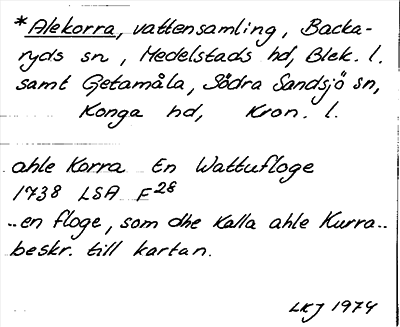 *Alekorra, vattensamling, Backa-
ryds sn, Medelstads hd, Blek. l.
samt Getamåla, Södra Sandsjö sn,
Konga hd, Kron. l.
ahle Korra En Wattufloge
1738 LSA F28
..en floge, som dhe Kalla ahle Kurra..
beskr. till kartan.
LKJ 1974